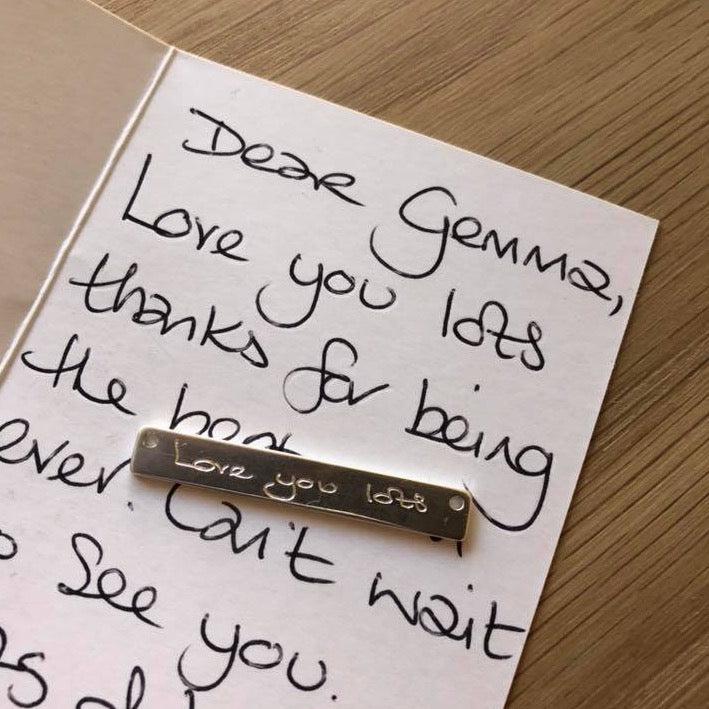 Dear Gemma,
Love you lots
thanks for being
the
Love you lots
ever. Can't wait
See you.